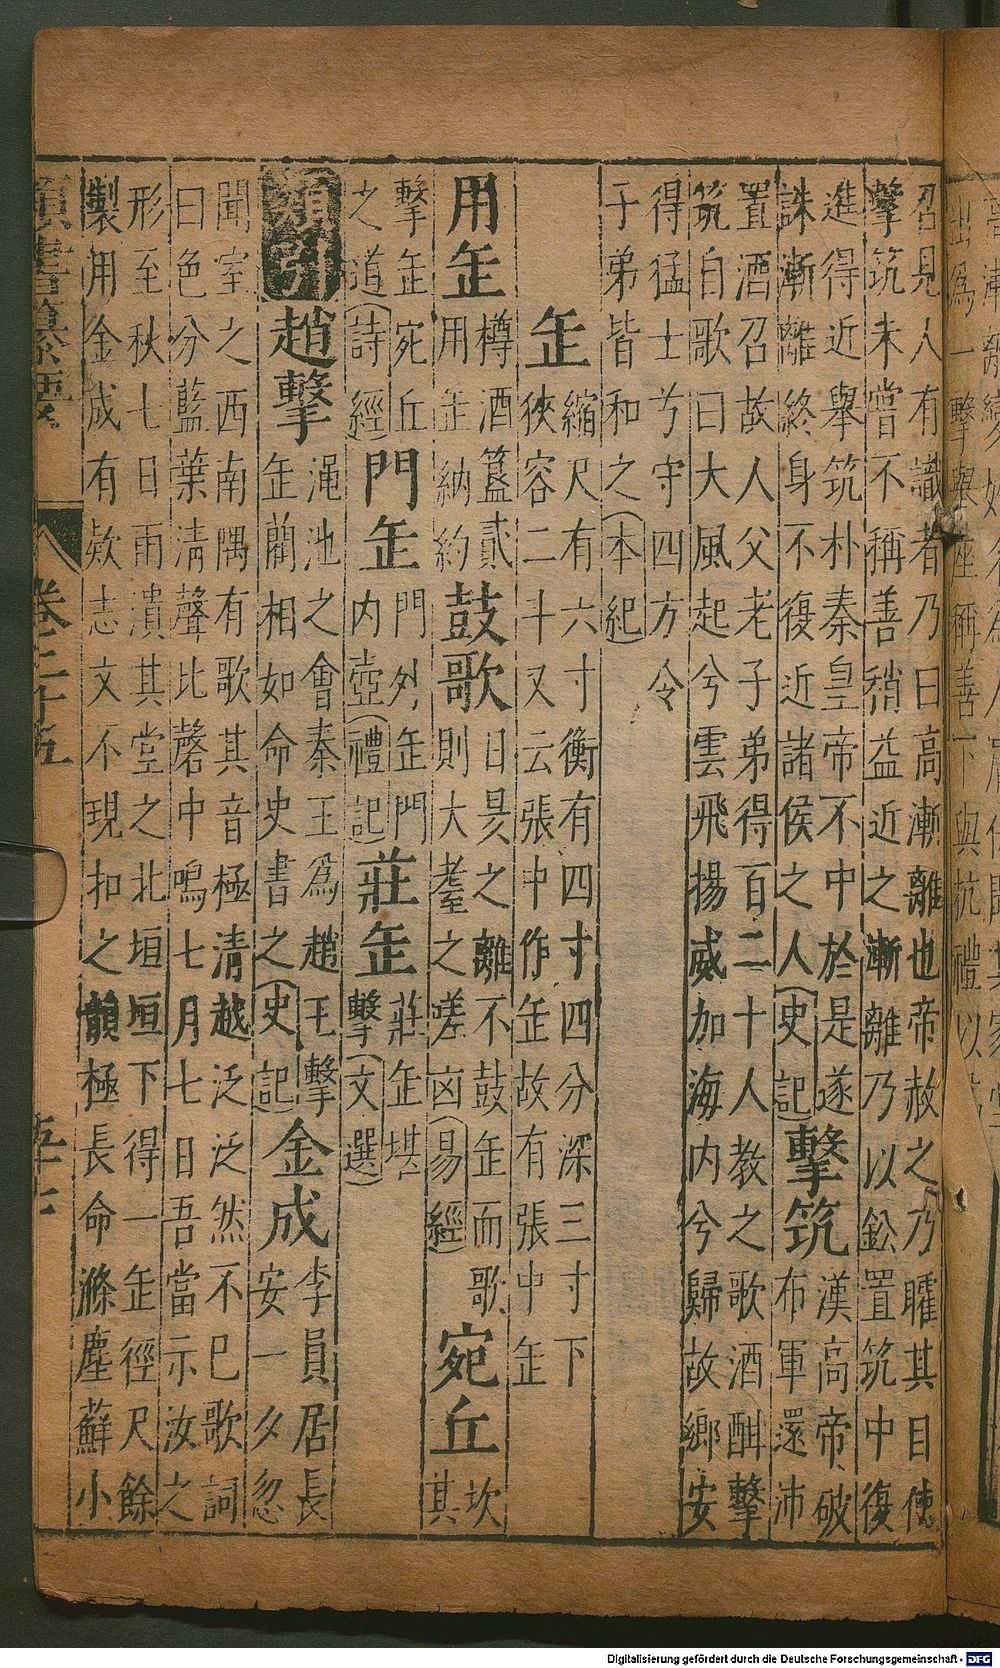 召見人有識者乃曰高漸離也帝赦之乃矐其目使
擊筑未嘗不稱善稍益近之漸離乃以鈆置筑中復
進得近舉筑朴秦皇帝不中於是遂
誅漸離終身不復近諸侯之人(史記)
擊筑
漢高帝破
布軍還沛
置酒召故人父老子弟得百二十人教之歌酒酣擊
筑自歌曰大風起兮雲飛揚威加海内兮歸故鄉安
得猛士兮守四方令
子弟皆和之(本紀)
缶
縮尺有六寸衡有四寸四分深三寸下
狹容二斗又云張中作缶故有張中缶
用缶
樽酒簋貳
用缶納約
鼓歌
日昃之離不鼓缶而歌
則大耋之嗟凶(易經)
宛丘
坎
其
擊缶宛丘
之道(詩經)
門缶
門外缶門
内壺(禮記)
莊缶
莊缶堪
擊(文選)
類引
趙擊
澠池之會秦王爲趙王擊
缶藺相如命史書之(史記)
金成
李員居長
安一夕忽
聞室之西南隅有歌其音極清越泛泛然不已歌詞
曰色分藍葉清聲比磬中鳴七月七日吾當示汝之
形至秋七日雨潰其堂之北垣垣下得一缶徑尺餘
製用金成有欵志文不現扣之韻極長命滌塵蘇小
類書纂要
卷二十五
Digitalisierung gefördert durch die Deutsche Forschungsgemeinschaft - DFG